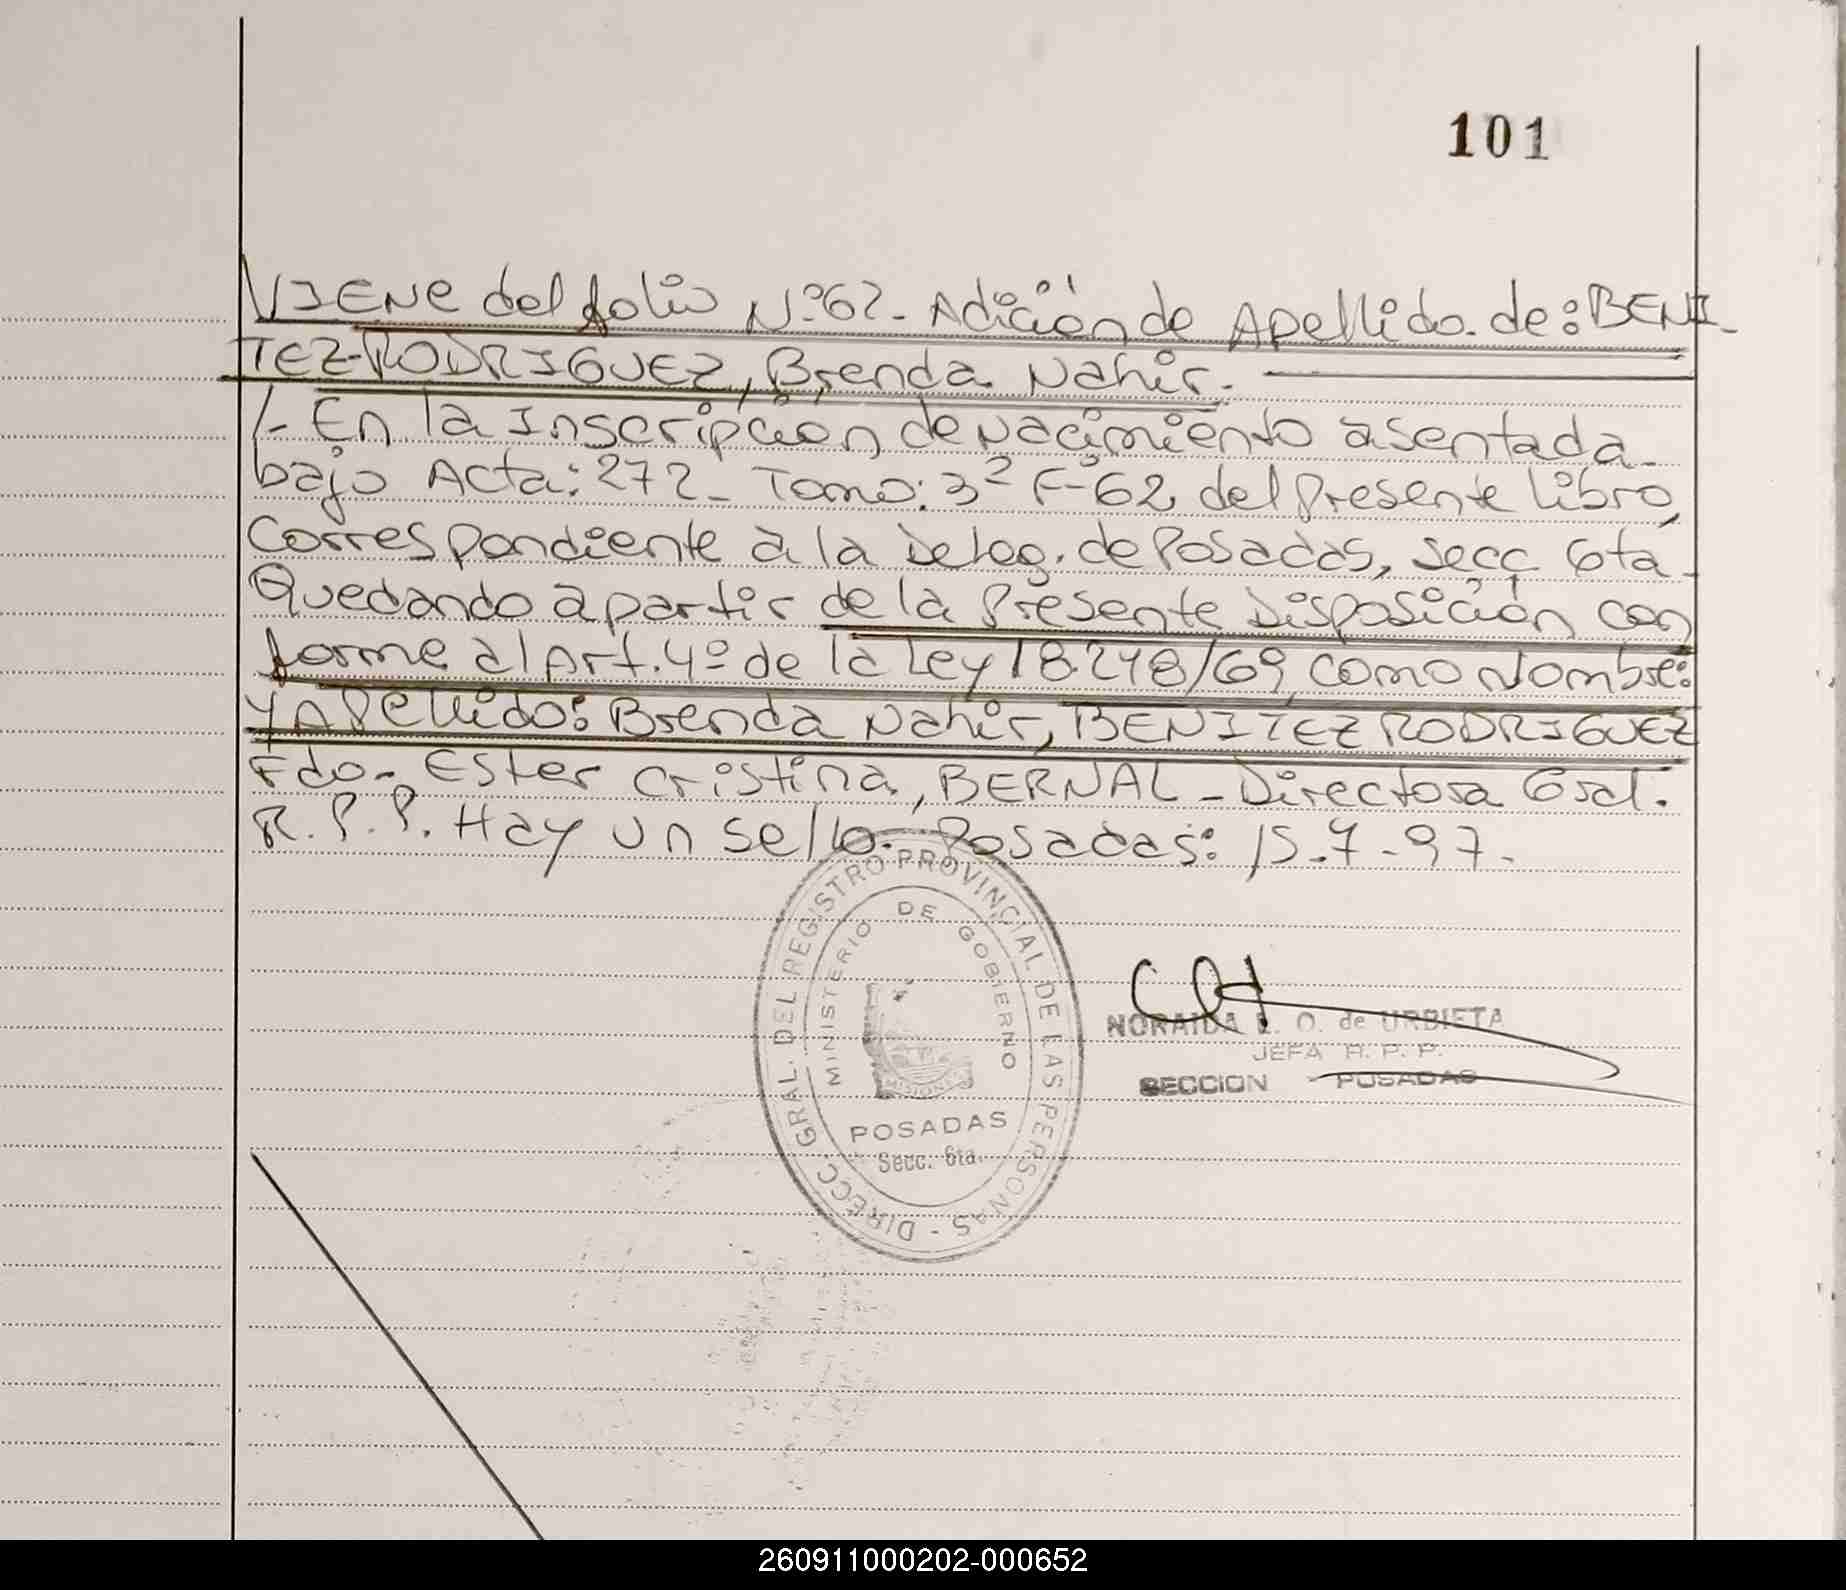 101
VIENE del folio Nº62- Adición de Apellido de: BENI-
TEZ-RODRIGUEZ, Brenda Nahir.
/- En la Inscripción de Nacimiento asentada
bajo Acta: 272- Tomo: 3º Fº62 del Presente libro,
Correspondiente a la Deleg. de Posadas, Secc 6ta-
Quedando a partir de la Presente Disposición con
forme al Art. 4º de la Ley 18.248/69, como Nombre:
Y Apellido: Brenda Nahir, BENITEZ RODRIGUEZ
Fdo- Ester Cristina, BERNAL - Directora Gral.
R.P.P. Hay un sello. Posadas: 15.7-97-
DIRECC. GRAL. DEL REGISTRO PROVINCIAL DE LAS PERSONAS -
MINISTERIO DE GOBIERNO
MISIONES
POSADAS
Secc. 6ta.
NORAIDA E. O. de URBIETA
JEFA R. P. P.
SECCION - POSADAS
260911000202-000652